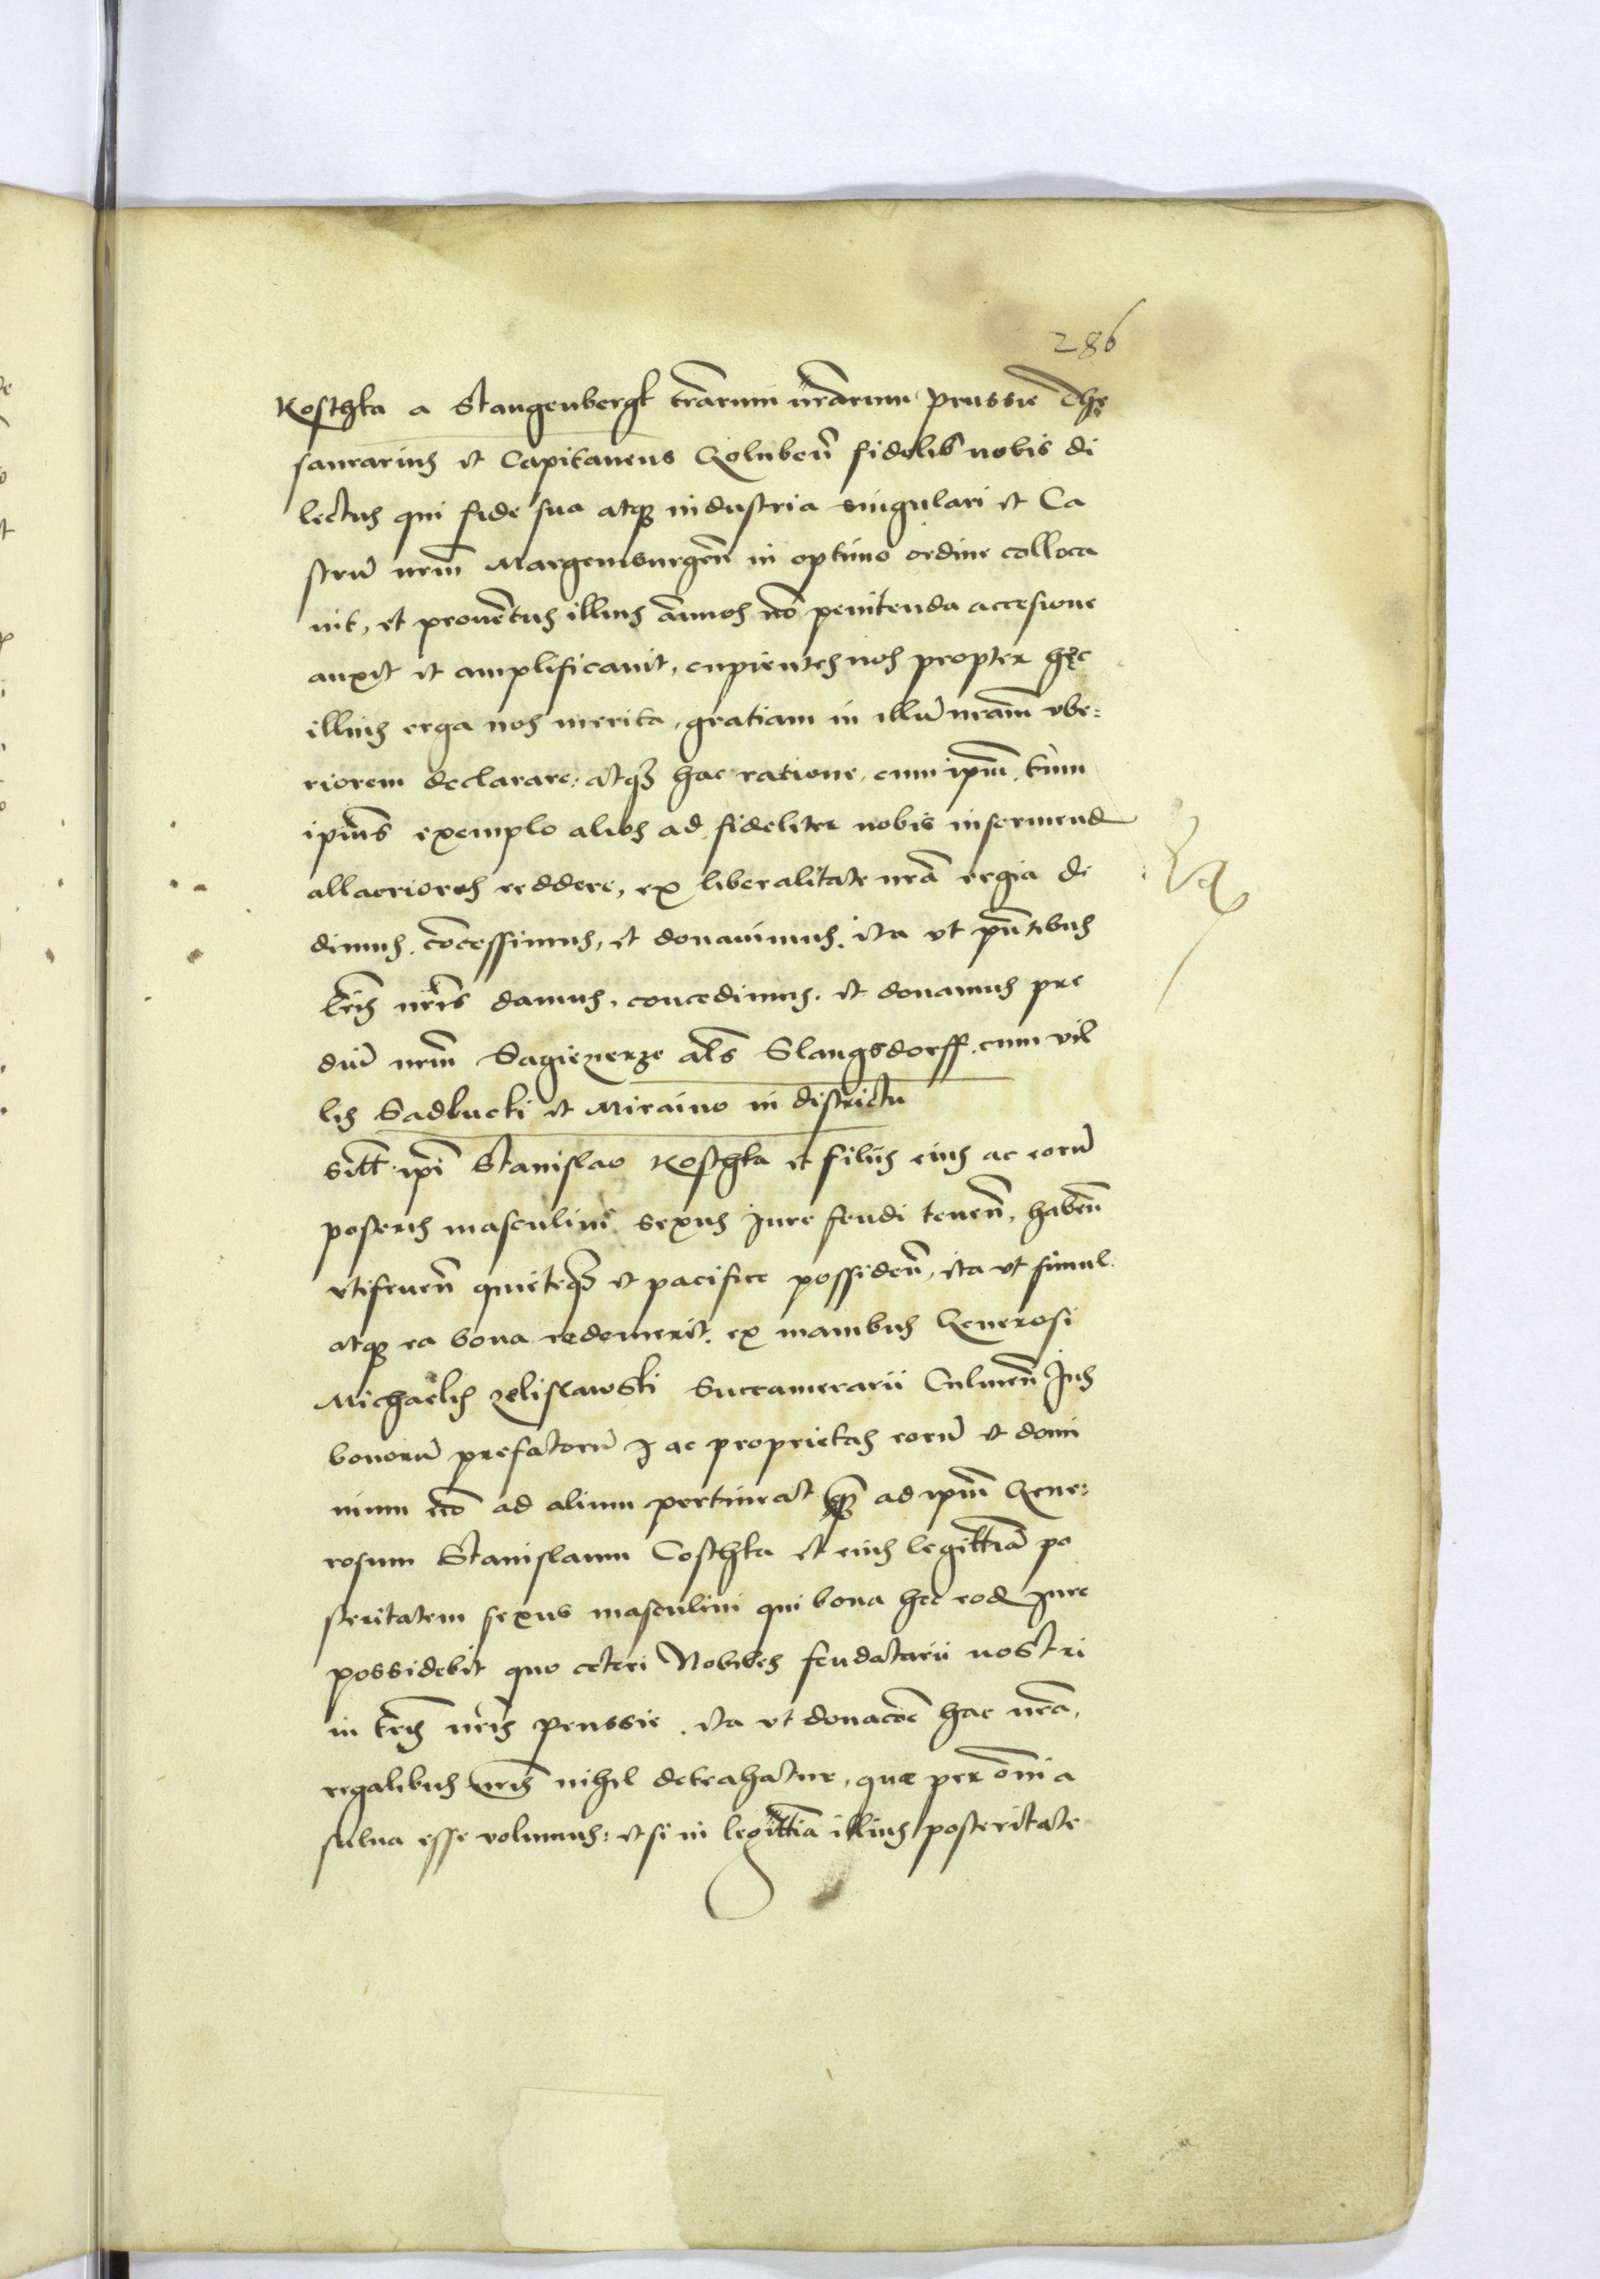 286
Koschka a Stangenbergk trarum nrarum prussie The
saurarius et Capitaneus Golubeñ fidelis nobis di
lectus qui fide sua atq industria singulari et Ca
strũ nrm̃ Margemburgeñ in optimo ordine colloca
uit, et prouẽtus illius ãnuos nõ penitenda accesione
auxit et amplificauit, cupientes nos propter hęc
illius erga nos merita, gratiam in illũ nram̃ vbe:
riorem declarare: atq hac ratione, cum ipm̃, tùm
ipiùs exemplo alios ad fideliter nobis inseruiend
allacriores reddere, ex liberalitate nrã regia de
dimus, cõcessimus, et donauimus, ita vt pñtibus
lris nris damus, concedimus, et donamus pre
diũ nrm̃ Sagiezerze als Slangsdorff, cum vil
lis Sadlucki et Miraino in districtu
sitt ipi Stanislao Koschka et filiis eius ac eorũ
posteris masculini sexus Jure feudi teneñ, habeñ
vtifrueñ quieteq et pacifice possideñ, ita vt simul
atq ea bona redemerit, ex manibus Generosi
Michaëlis zelislawski Succamerarii Culmeñ Jus
bonorũ prefatorũ ac proprietas eorũ et domi
nium nõ ad alium pertineat q̃ ad ipm̃ Gene:
rosum Stanislaum Coschka et eius legittiã po
steritatem sexus masculini qui bona hec eod Jure
possidebit quo ceteri Nobiles feudatarii nostri
in tris nris prussie, ita vt donacõe hac nrã,
regalibus nris nihil detrahatur, quæ per omnia
salua esse volumus: et si in legittia illius posteritate